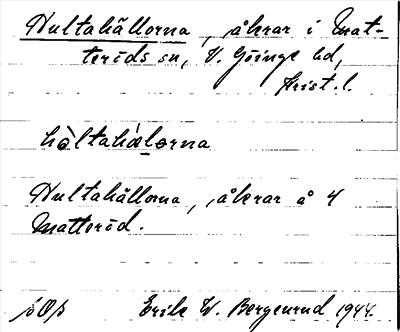 Hultahällorna, åkrar i Mat-
teröds sn, V. Göinge hd,
Krist. l.
hòltahæ̀lorna
Hultahällorna, åkrar å 4
Matteröd.
Erik W. Bergenrud 1944.